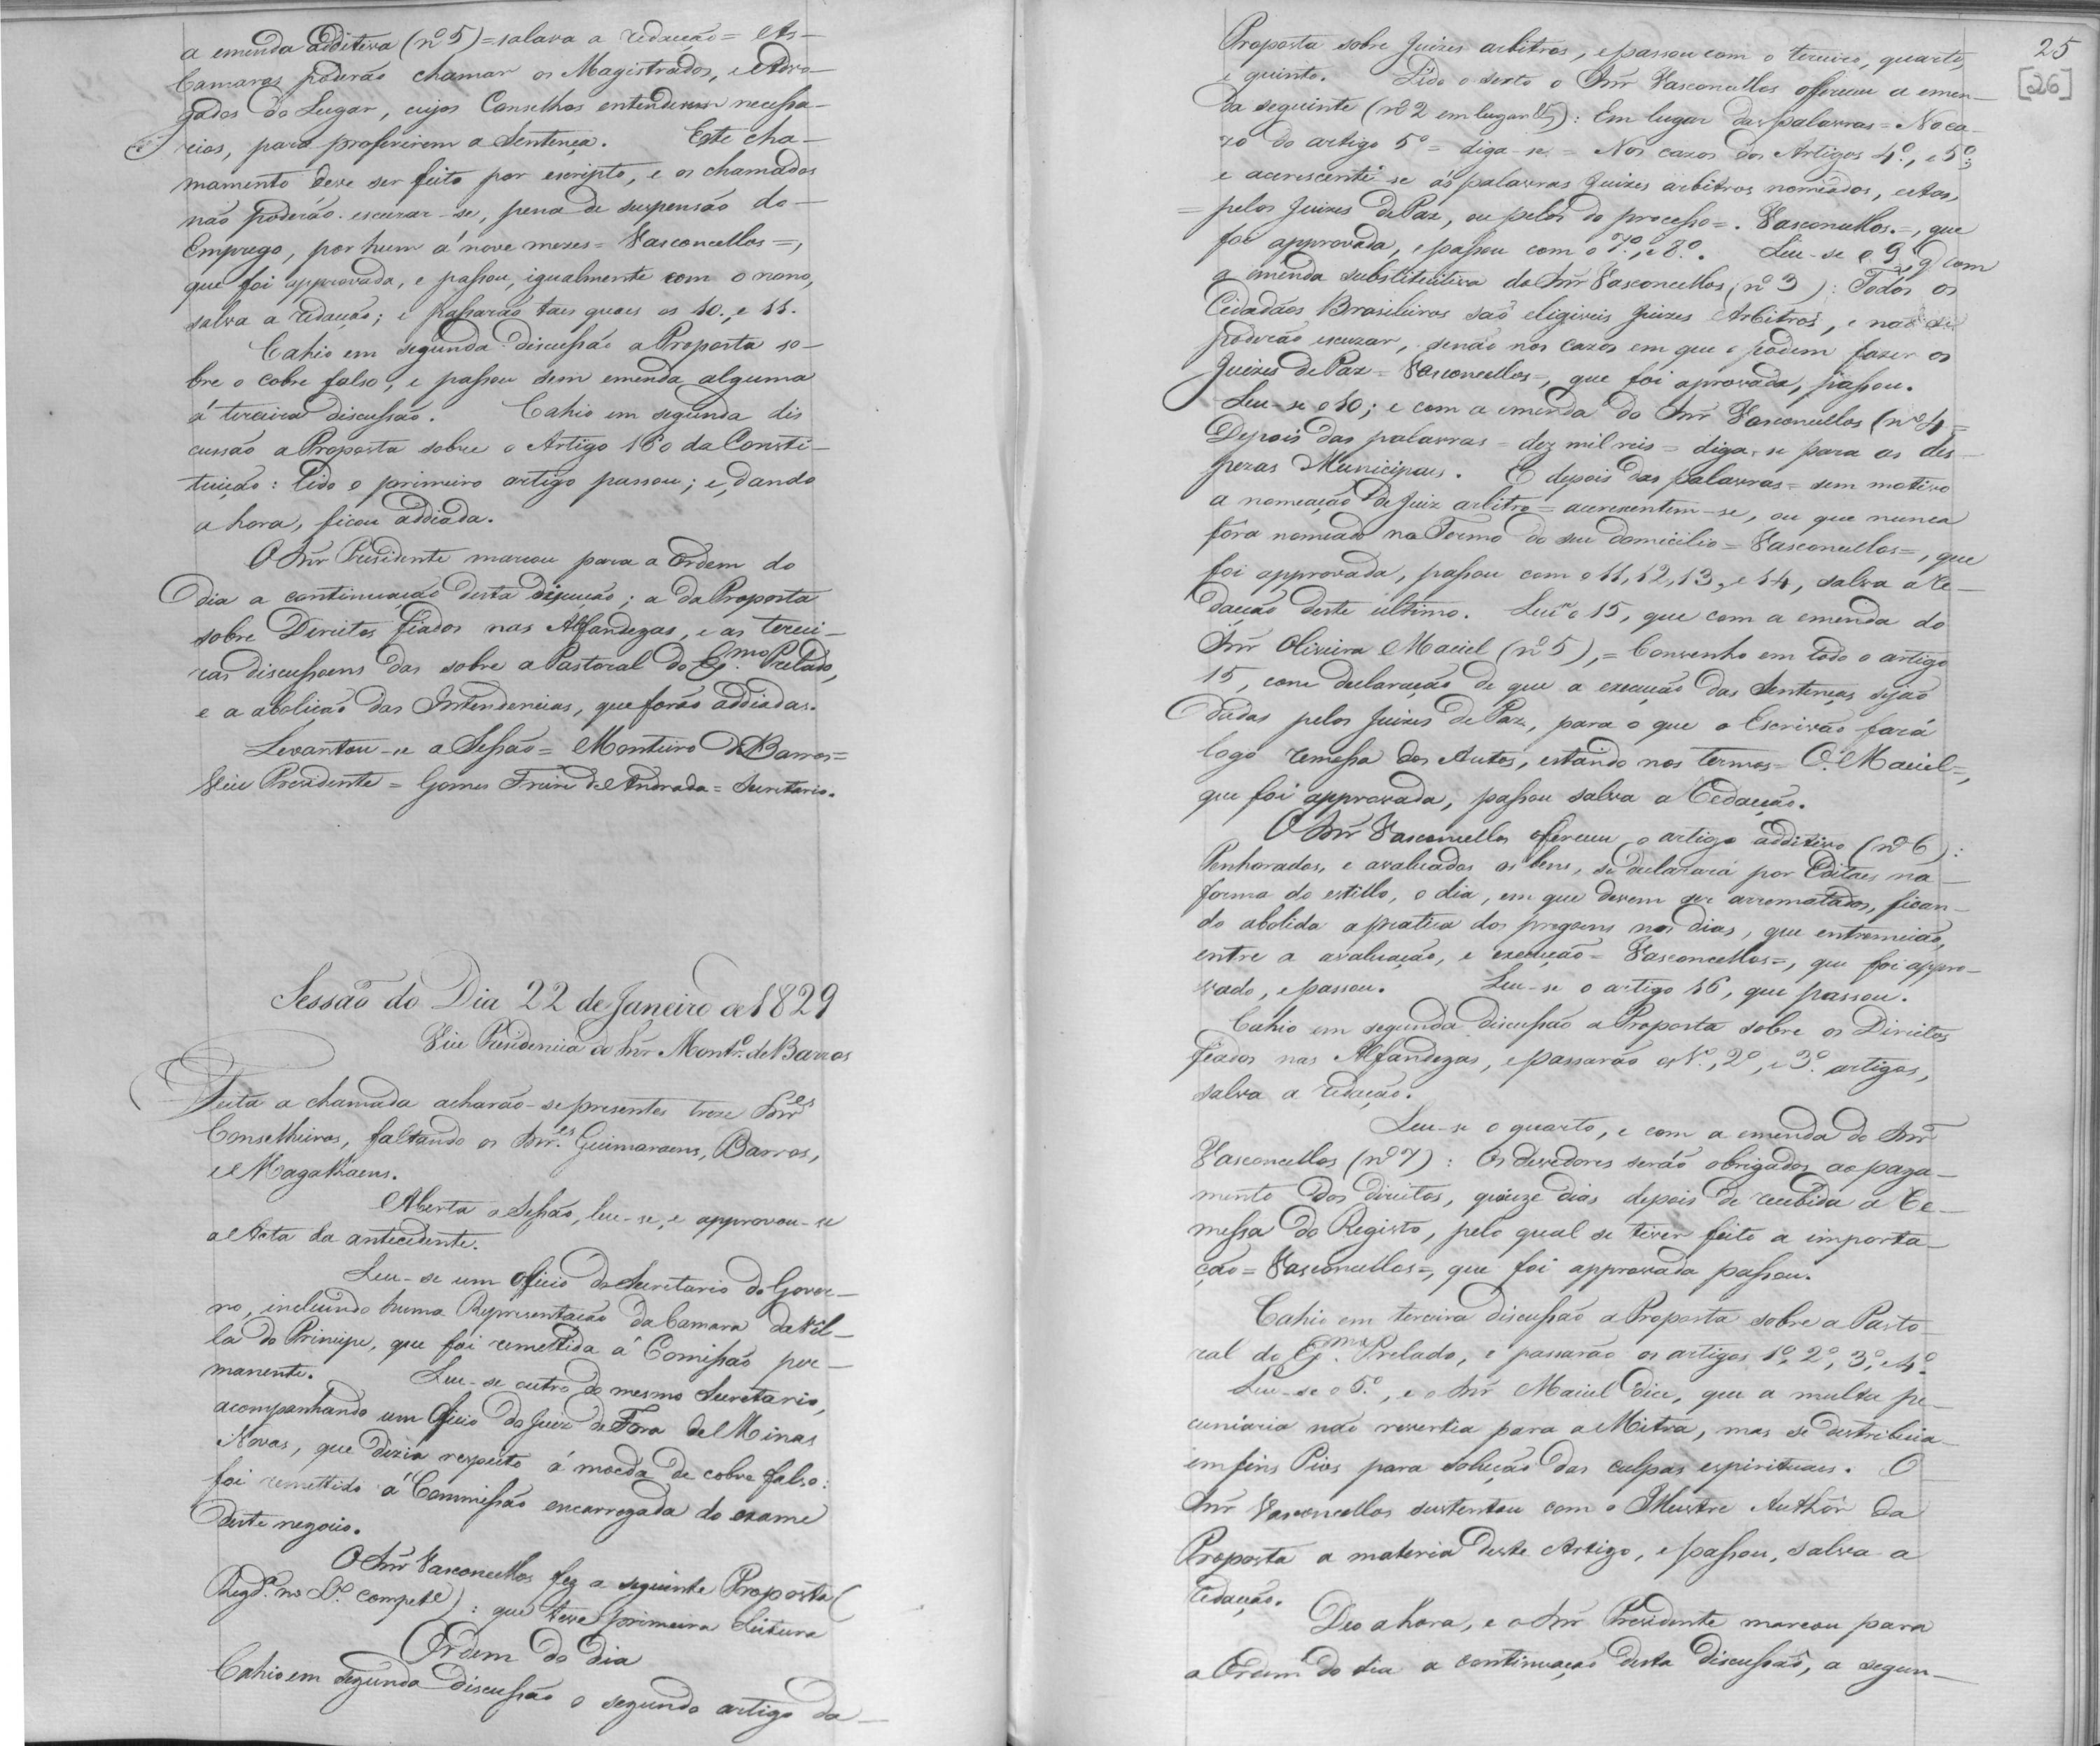 a emenda additiva (nº 5) = salava a redacção = As
Camaras poderáõ chamar os Magistrados, e Advo-
gados do Lugar, cujos Conselhos entenderem necessa-
rios, para proferirem a Sentença. Este cha-
mamento deve ser feito por escripto, e os chamados
não poderáõ escuzar-se, pena de suspensão do
Emprego, por hum á nove mezes = Vasconcellos =,
que foi approvada, e passou, igualmente com o nono,
salva a redacção; e passarão taes quaes os 10., e 11.
Cahio em segunda discussão a Proposta so-
bre o cobre falso, e passou sem emenda alguma
á terceira discussão. Cahio em segunda dis
cussão a Proposta sobre o Artigo 160 da Consti-
tuição: lido o primeiro artigo passou; e, dando
a hora, ficou addiada.
O Snr Presidente marcou para a Ordem do
Dia a continuação desta discução; a da Proposta
sobre Direitos fiados nas Alfandegas, e as tercei-
ras discussoens das sobre a Pastoral do Exmo. Prelado,
e a abolição das Intendencias, que forão addiadas.
Levantou-se a Sessão = Monteiro de Barros =
Vice Presidente = Gomes Freire de Andrada = Secretario.
Sessão do Dia 22 de Janeiro de 1829
Vice Presidencia do Snr Montrº. de Barros
Feita a chamada acharão-se presentes treze Snres
Conselheiros, faltando os Snres. Guimaraens, Barros,
e Magalhaens.
Aberta a Sessão, leu-se, e approvou-se
a Acta da antecedente.
Leu-se um Oficio do Secretario do Gover-
no, incluindo huma Representação da Camara da Vil-
la do Principe, que foi remettida á Comissão per-
manente. Leu-se outro do mesmo Secretario,
acompanhando um Oficio do Juiz de Fora de Minas
Novas, que dizia respeito á moeda de cobre falso:
foi remettido á Commissão encarregada do exame
deste negocio.
O Snr Vasconcellos fez a seguinte Proposta (
Regda. no Lº. compete): que teve primeira Leitura
Ordem do dia
Cahio em segunda discussão o segundo artigo da
25
[26]
Proposta sobre Juizes arbitros, e passou com o terceiro, quarto,
e quinto. Lido o sexto o Snr Vasconcellos offereceu a emen-
da seguinte (nº 2 em lugar): Em lugar das palavras = No ca-
zo do artigo 5º = diga-se = Nos cazos dos Artigos 4º., e 5º;
e acrescente-se ás palavras Juizes arbitros nomeados, estas,
= pelos Juizes de Paz, ou pelos do processo =. Vasconcellos. =, que
foi approvada, e passou com o 7º., e 8º. Leu-se o 9, q com
a emenda substitutiva do Snr Vasconcellos (nº 3): Todos os
Cidadãos Brasileiros são eligiveis Juizes Arbitros, e não se
poderão escuzar, senão nos cazos em que o podem fazer os
Juizes de Paz = Vasconcellos =, que foi aprovada, passou.
Leu-se o 10; e com a emenda do Snr Vasconcellos (nº 4 =
Depois das palavras = dez mil reis = diga-se para as des
pezas Municipaes. E depois das palavras = sem motivo
a nomeação de Juiz arbitro = acresentem-se, ou que nunca
fôra nomeado no Termo do seu domicilio = Vasconcellos =, que
foi approvada, passou com o 11, 12, 13, e 14, salva a re-
dacção deste ultimo. Leu-se o 15, que com a emenda do
Snr Oliveira Maciel (nº 5), = Convenho em todo o artigo
15, com declaração de que a execução das Sentenças sejão
dadas pelos Juizes de Paz, para o que o Escrivão fará
logo remessa dos Autos, estando nos termos = O. Maciel =,
que foi approvada, passou salva a redacção.
O Snr Vasconcellos offereceu o artigo additivo (nº 6):
Penhorados, e avaluados os bens, se declarará por Editaes na
forma do estillo, o dia, em que devem ser arrematados, fican-
do abolida a pratica dos pregoens nos dias, que entremeião,
entre a avaluação, e execução = Vasconcellos =, que foi appro-
vado, e passou. Leu-se o artigo 16, que passou.
Cahio em segunda discussão a Proposta sobre os Direitos
fiados nas Alfandegas, e passarão os 1º., 2º, e 3º. artigos,
salva a redacção.
Leu-se o quarto, e com a emenda do Snr
Vasconcellos (nº 7): Os devedores serão obrigados ao paga-
mento dos direitos, quinze dias depois de recebida a re-
messa do Registo, pelo qual se tiver feito a importa-
ção = Vasconcellos =, que foi approvada passou.
Cahio em terceira discussão a Proposta sobre a Pasto-
ral do Exmo. Prelado, e passarão os artigos 1º, 2º, 3º, e 4º.
Leu-se o 5º., e o Snr Maciel dice, que a multa pe-
cuniaria não revertia para a Mitra, mas se destribuia
em fins Pios para solução das culpas espirituaes. O
Snr Vasconcellos sustentou com o Illustre Author da
Proposta a materia deste Artigo, e passou, salva a
redacção.
Deo a hora, e o Snr Prezidente marcou para
a Ordem do dia a continuação desta discussão, a segun-